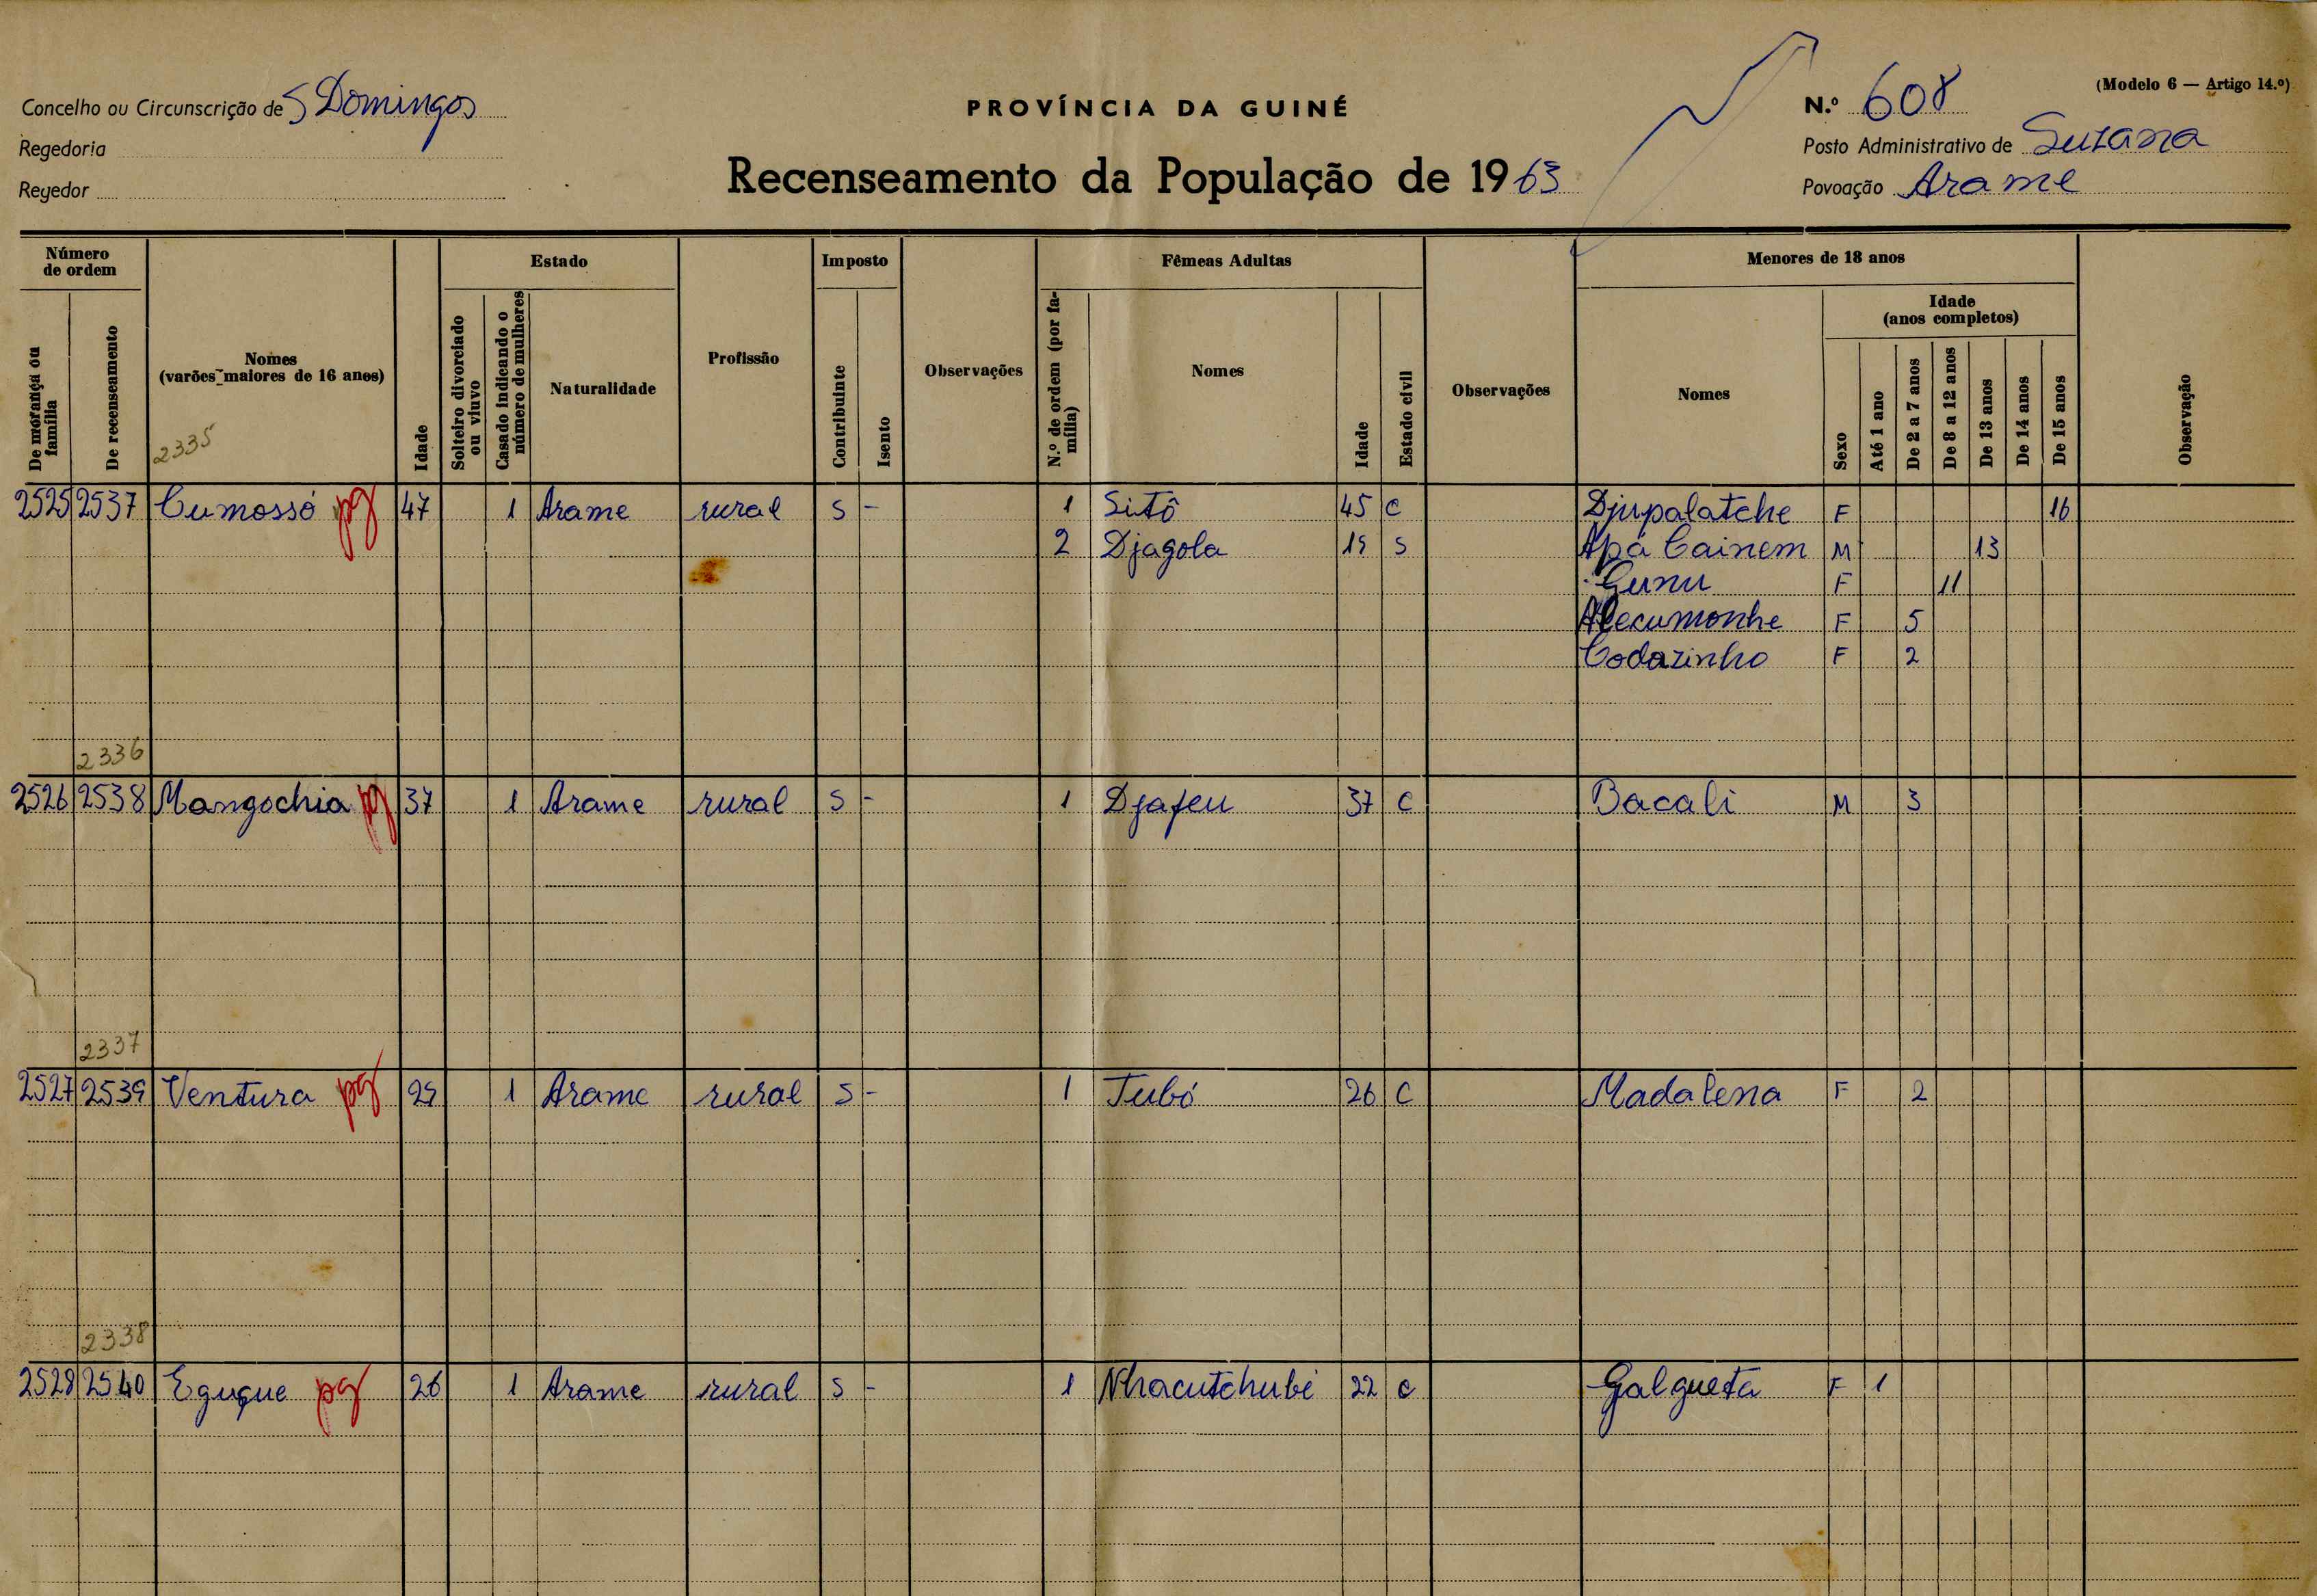 (Modelo 6 — Artigo 14.º)
Concelho ou Circunscrição de S Domingos
PROVÍNCIA DA GUINÉ
N.º 608
Regedoria
Posto Administrativo de Suzana
Regedor
Recenseamento da População de 1963
Povoação Arame
Número de ordem
De morança ou família
De recenseamento
Nomes
(varões maiores de 16 anos)
2335
Idade
Estado
Solteiro divorciado ou viuvo
Casado indicando o número de mulheres
Naturalidade
Profissão
Imposto
Contribuinte
Isento
Observações
Fêmeas Adultas
N.º de ordem (por família)
Nomes
Idade
Estado civil
Observações
Menores de 18 anos
Nomes
Sexo
Idade
(anos completos)
Até 1 ano
De 2 a 7 anos
De 8 a 12 anos
De 13 anos
De 14 anos
De 15 anos
Observação
2525 2537 Cumossó pg 47 1 Arame rural S - 1 Sitô 45 C Djupalatche F 16
2 Djagola 19 S Apá Cainem M 13
Gunu F 11
Alecumonhe F 5
Codazinho F 2
2336
2526 2538 Mangochia pg 37 1 Arame rural S - 1 Djafeu 37 C Bacali M 3
2337
2527 2539 Ventura pg 29 1 Arame rural S - 1 Tubó 26 C Madalena F 2
2338
2528 2540 Eguque pg 26 1 Arame rural S - 1 Nhacutchubé 22 C Galgueta F 1